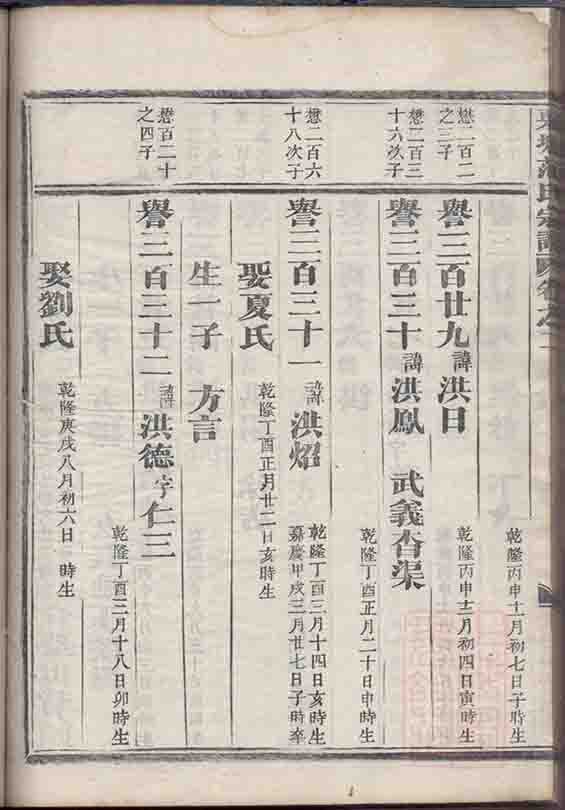 氏宗譜
乾隆丙申十一月初七日子時生
懋二百二
之三子
譽三百廿九諱洪日
乾隆丙申十二月初四日寅時生
懋二百三
十六次子
譽三百三十諱洪鳳 武義杳渠
乾隆丁酉正月二十日申時生
懋二百六
十八次子
譽三百三十一諱洪炤
乾隆丁酉三月十四日亥時生
嘉慶甲戌三月廿七日子時卒
娶夏氏
乾隆丁酉正月廿二日亥時生
生一子 方言
懋百二十
之四子
譽三百三十二諱洪德字仁三
乾隆丁酉三月十八日卯時生
娶劉氏
乾隆庚戌八月初六日 時生